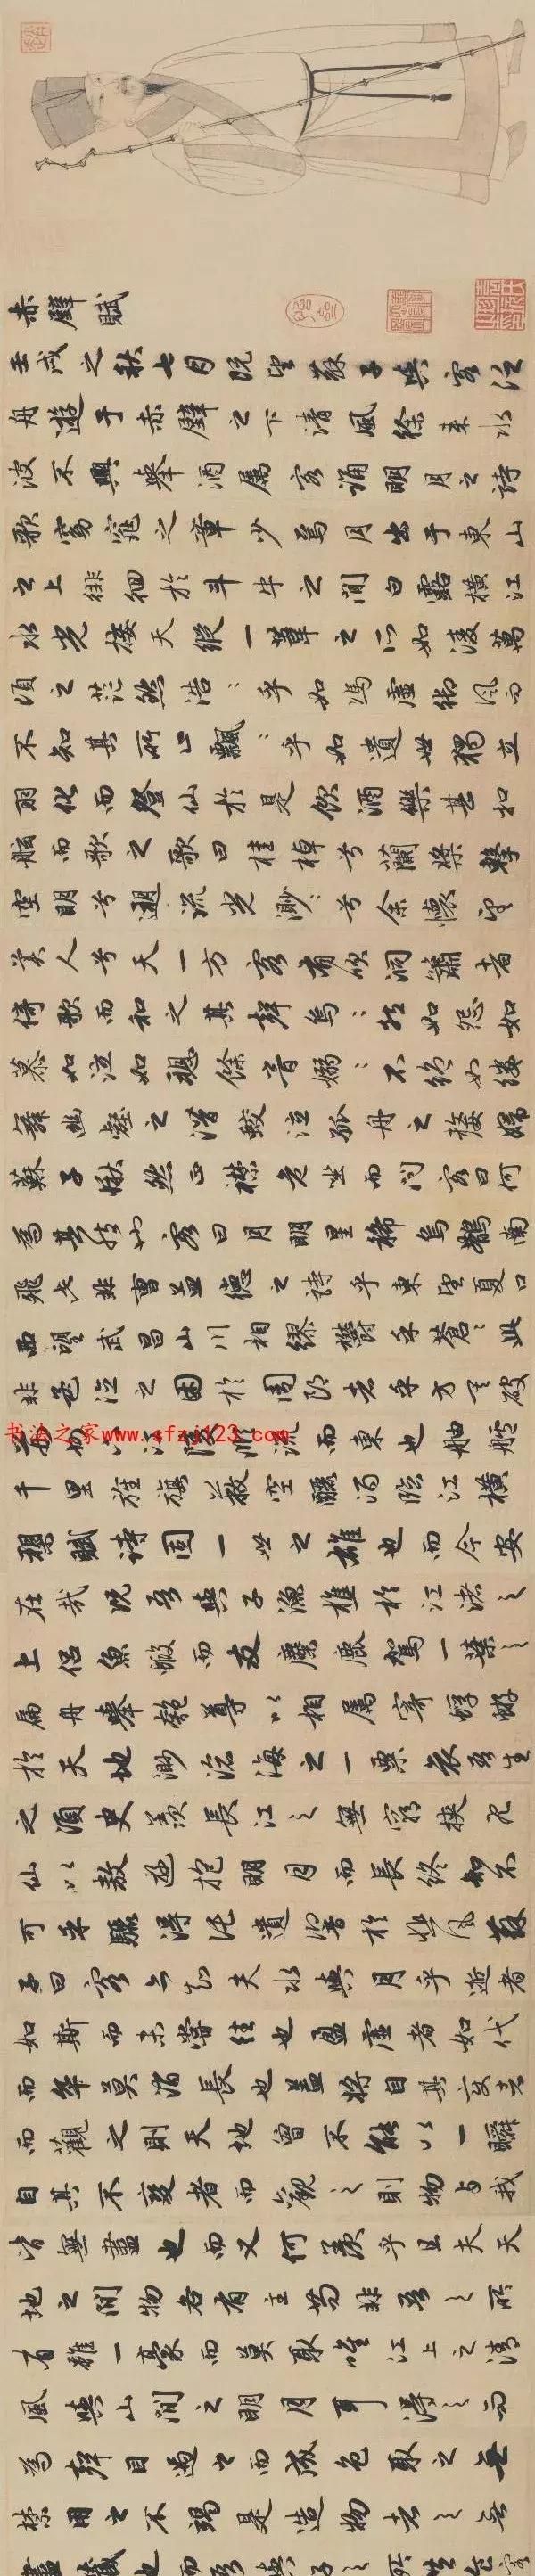 赤壁賦
壬戌之秋七月既望蘇子與客泛
舟遊于赤壁之下清風徐來水
波不興舉酒屬客誦明月之詩
歌窈窕之章少焉月出于東山
之上徘徊於斗牛之間白露橫江
水光接天縱一葦之所如凌萬
頃之茫然浩〻乎如馮虛御風而
不知其所止飄〻乎如遺世獨立
羽化而登仙於是飲酒樂甚扣
舷而歌之歌曰桂棹兮蘭槳擊
空明兮遡流光渺〻兮余懷望
美人兮天一方客有吹洞簫者
倚歌而和之其聲烏〻然如怨如
慕如泣如訴餘音嫋〻不絕如縷
舞幽壑之潛蛟泣孤舟之嫠婦
蘇子愀然正襟危坐而問客曰何
為其然也客曰月明星稀烏鵲南
飛此非曹孟德之詩乎東望夏口
西望武昌山川相繆鬱乎蒼〻此
非孟德之困於周郎者乎方其破
荊州下江陵順流而東也舳艫
千里旌旗蔽空釃酒臨江橫
槊賦詩固一世之雄也而今安
在哉況吾與子漁樵於江渚之
上侶魚蝦而友麋鹿駕一葉之
扁舟舉匏尊以相屬寄蜉蝣
於天地渺滄海之一粟哀吾生
之須臾羨長江之無窮挾飛
仙以敖遊抱明月而長終知不
可乎驟得託遺響於悲風蘇
子曰客亦知夫水與月乎逝者
如斯而未嘗往也盈虛者如代
而卒莫消長也蓋將自其變者
而觀之則天地曾不能以一瞬
自其不變者而觀之則物與我
皆無盡也而又何羨乎且夫天
地之間物各有主苟非吾之所
有雖一豪而莫取唯江上之清
風與山間之明月耳得之而
為聲目遇之而成色取之無
禁用之不竭是造物者之無
盡藏也而吾與子之所共
书法之家www.sfzj123.com